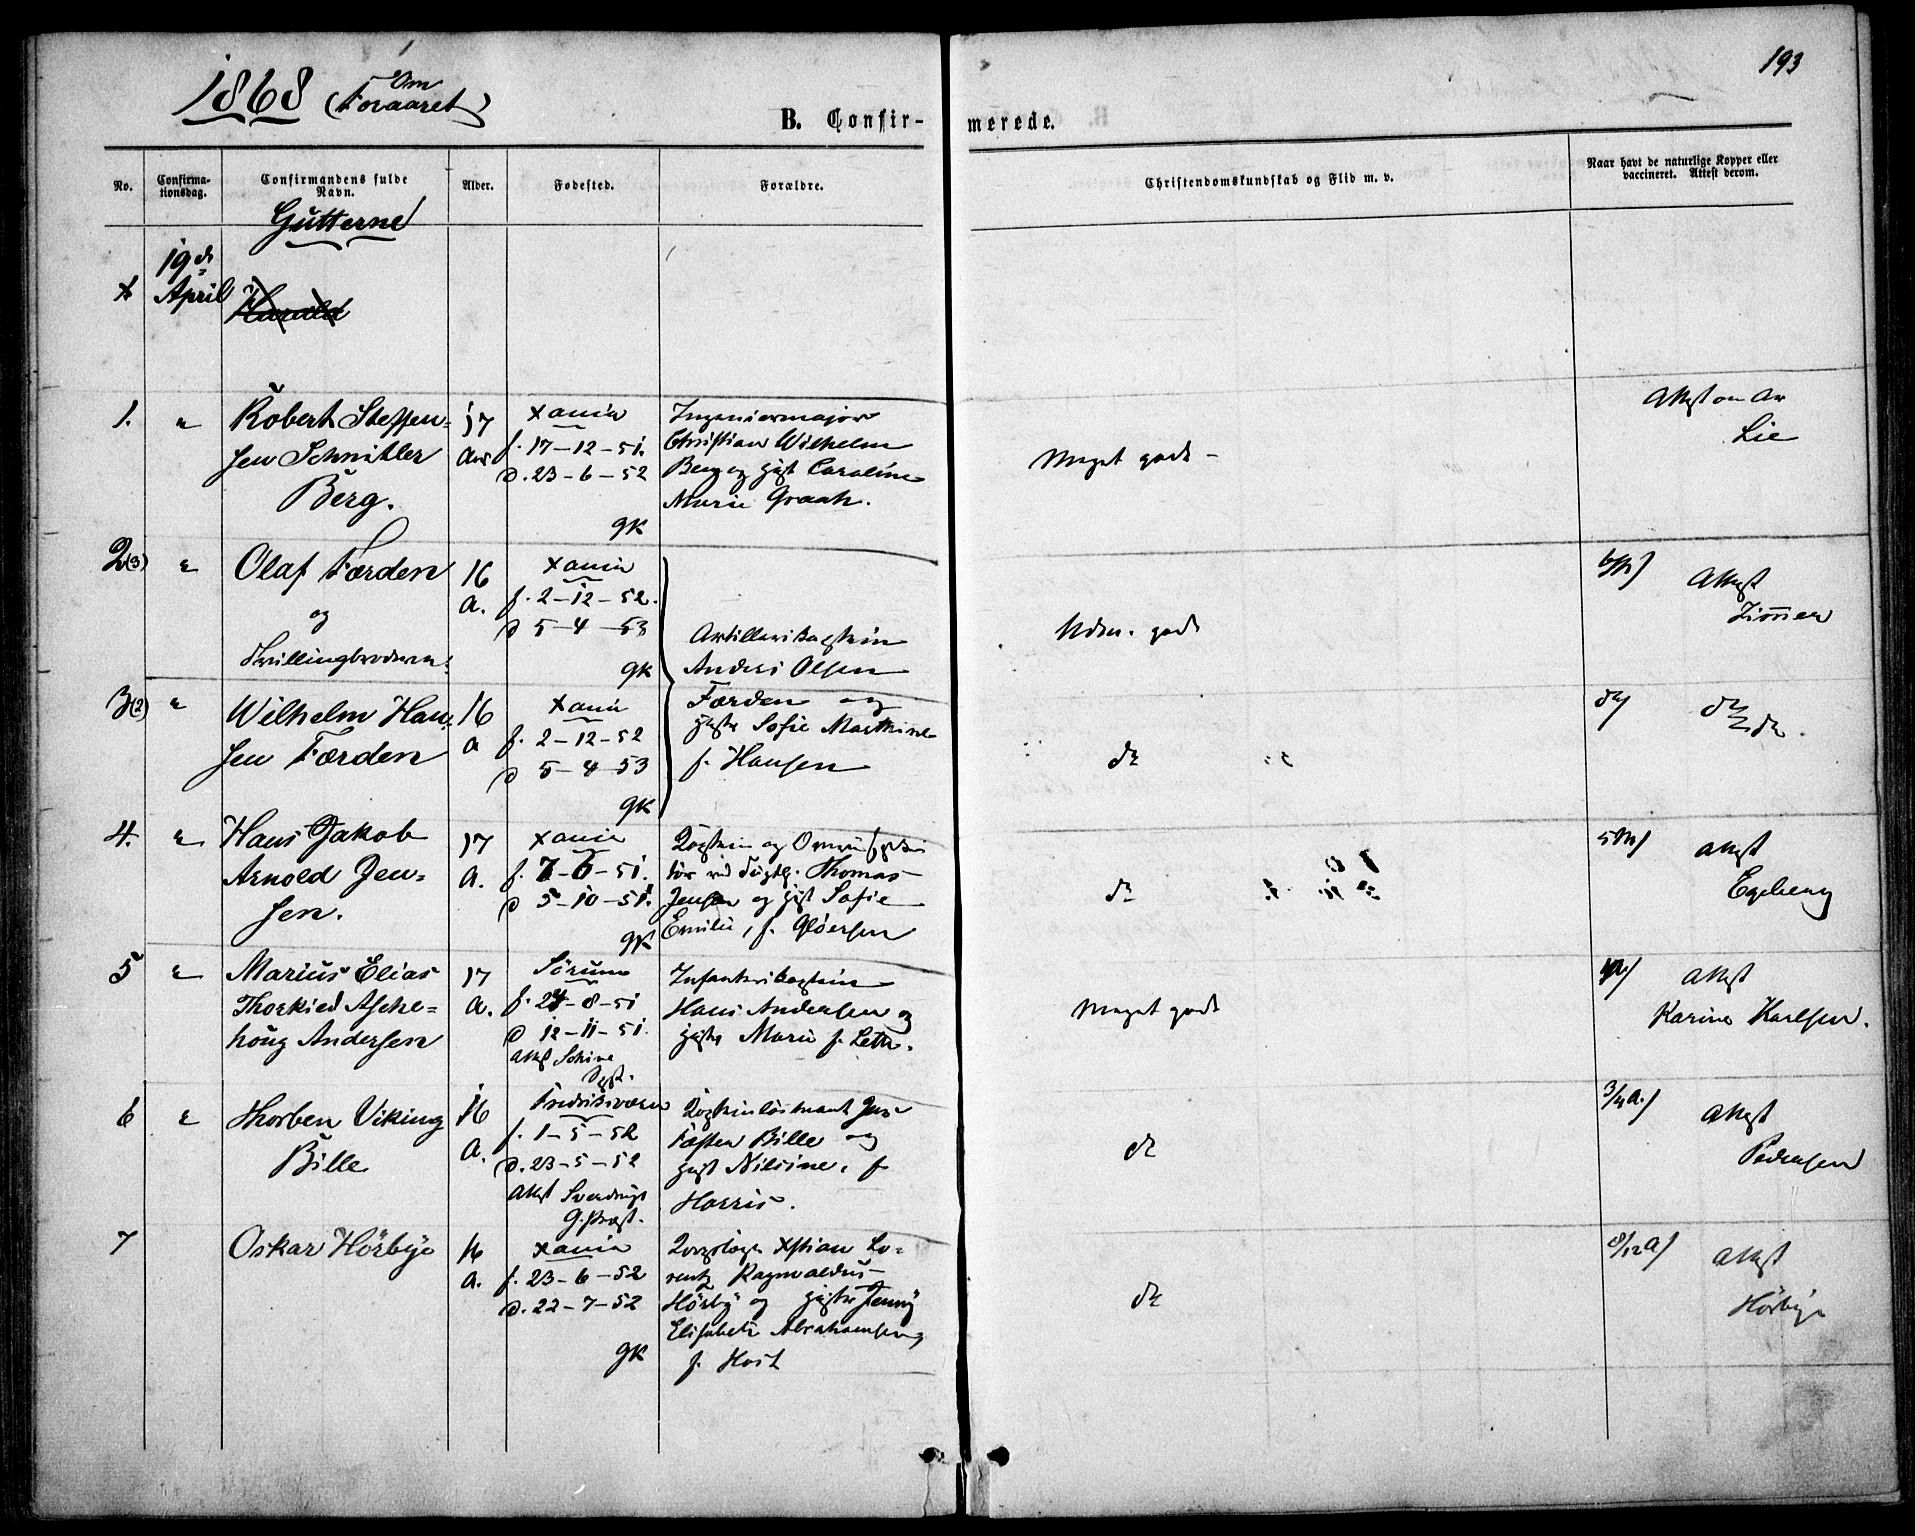 193
1868 (Om
Foraaret)
B. Confir- merede.
No.
Confirma-
tionsdag.
Confirmandens fulde
Navn.
Alder.
Fødested.
Forældre.
Christendomskundskab og Flid m. v.
Naar havt de naturlige Kopper eller
vaccineret. Attest derom.
Gutterne
19de
April
Harald
1. "
Robert Steffen-
sen Schnitler
Berg.
17
Aar
Xania
f. 17-12-51.
d. 23-6-52
gk
Ingeniermajor
Christian Wilhelm
Berg og gift Caroline
Marie Graah.
Meget godt -
Attest
Lie
2(3) "
Olaf Færden
og
Trillingbroderen:
16
A.
Xania
f. 2-12-52.
d 5-4-53
gk
Artillerikaptein
Anders Olsen
Færden og
Sofie Marthine
f. Hansen
Udm. godt
Attest
Zimmer
3(2) "
Wilhelm Han-
sen Færden
16
a
Xania
f. 2-12-52
d 5-4-53
gk
do
do
do
4. "
Hans Jakob
Arnold Jen-
sen.
17
A.
Xania
f. 7-6-51.
d 5-10-51.
gk
Thomas
Jensen og gift Sofie
Emilie, f. Gløersen
do
Attest
Egeberg
5 "
Marius Elias
Thorkied Asche-
houg Andersen
17
A.
Sørum
f. 24-8-51
d 12-11-51.
Attest
Infanterikaptein
Hans Andersen og
Marie f. Leth.
Meget godt
Attest
Karine Karlsen.
6 "
Thorben Viking
Bille
16
A.
Fredriksværn
f. 1-5-52
d. 23-5-52
Attest Sverdrup
G. Præst.
Bille og
gift Nilsine, f.
Harris.
do
3/4 A.)
Attest
Pedersen
7
Oskar Hörbye
16
A.
Xania
f. 23-6-52
d. 22-7-52
gk
Xstian Lo-
rentz Ragnvaldus
Hörby og Jenny
Elisabeth Abrahamsen,
f. Host
do
8/12 A)
Attest
Hörbye